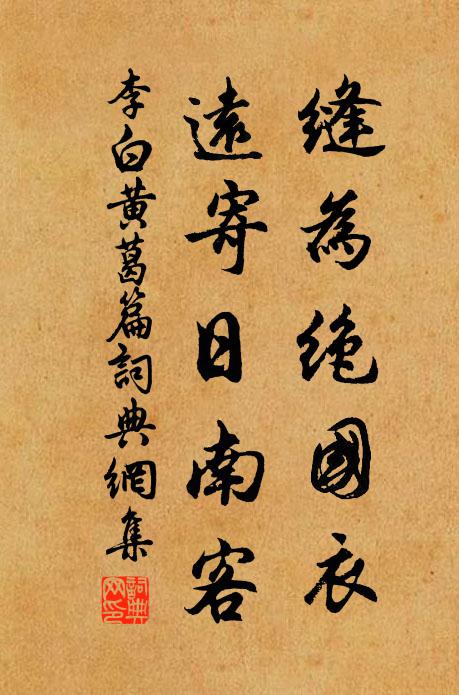 縫為絶國衣
遠寄日南客
李白黄葛篇詞典網集
詞典網印